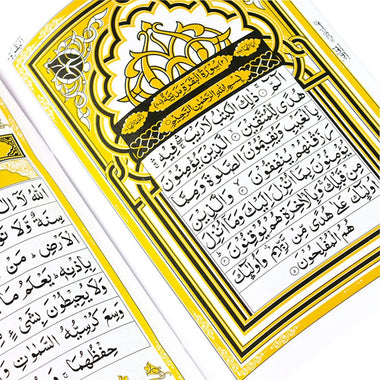 سُوْرَةُ الْبَقَرَةِ مَدَنِيَّةٌ
بِسْمِ اللهِ الرَّحْمٰنِ الرَّحِيْمِ
الٓمّٓ ذٰلِكَ الْكِتٰبُ لَا رَيْبَ فِيْهِ
هُدًى لِّلْمُتَّقِيْنَ الَّذِيْنَ يُؤْمِنُوْنَ
بِالْغَيْبِ وَيُقِيْمُوْنَ الصَّلٰوةَ وَمِمَّا
رَزَقْنٰهُمْ يُنْفِقُوْنَ وَالَّذِيْنَ
يُؤْمِنُوْنَ بِمَآ اُنْزِلَ اِلَيْكَ وَمَآ اُنْزِلَ
مِنْ قَبْلِكَ وَبِالْاٰخِرَةِ هُمْ يُوْقِنُوْنَ
اُولٰٓئِكَ عَلٰى هُدًى مِّنْ رَّبِّهِمْ وَاُولٰٓئِكَ
هُمُ الْمُفْلِحُوْنَ
اَللهُ لَآ اِلٰهَ
سِنَةٌ وَّلَا
الْاَرْضِ مَنْ
بِاِذْنِهٖ يَعْلَمُ مَا
وَلَا يُحِيْطُوْنَ بِشَيْءٍ
وَسِعَ كُرْسِيُّهُ السَّمٰوٰتِ
حِفْظُهُمَا